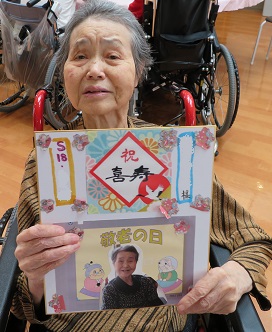 S18.
祝
喜寿
様
敬老の日